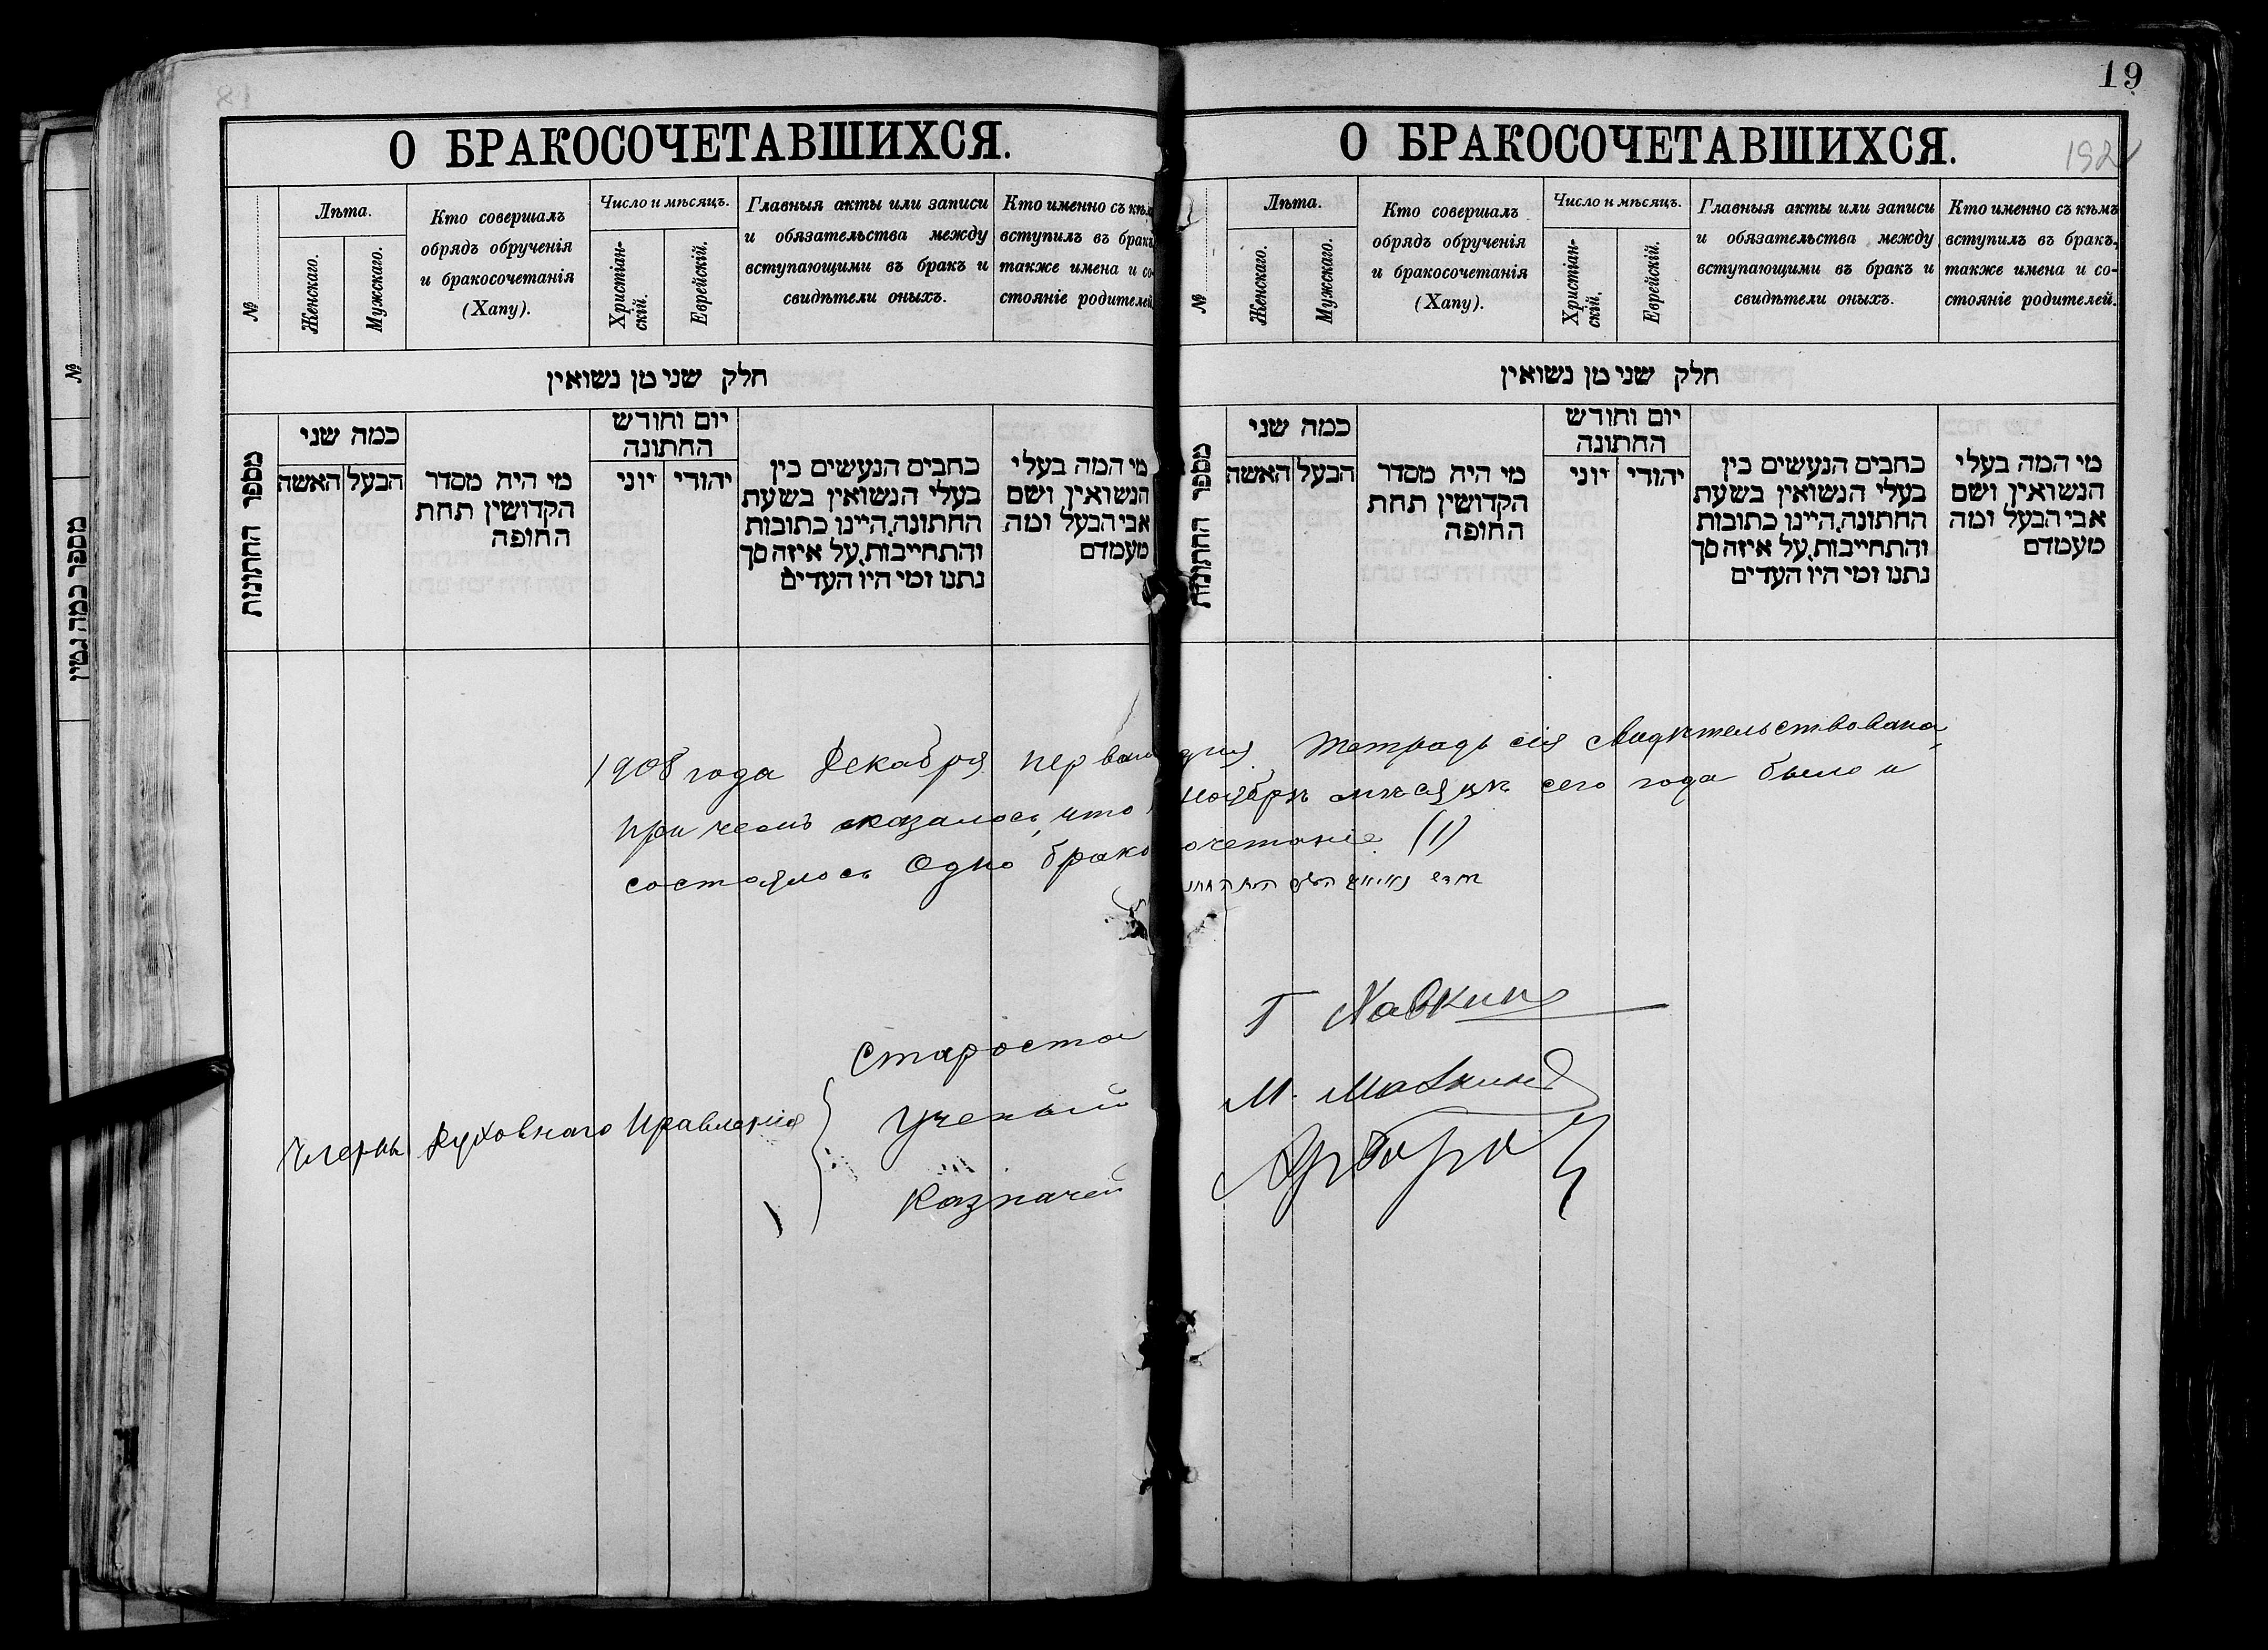 19
192
О БРАКОСОЧЕТАВШИХСЯ.
№
Лѣта.
Женскаго.
Мужскаго.
Кто совершалъ
обрядъ обрученія
и бракосочетанія
(Хапу).
Число и мѣсяцъ.
Христіан-
скій.
Еврейскій.
Главныя акты или записи
и обязательства между
вступающими въ бракъ и
свидѣтели оныхъ.
Кто именно съ кѣмъ
вступилъ въ бракъ,
также имена и со-
стояніе родителей.
חלק שני מן נשואין
מספר החתונות
כמה שני
הבעל האשה
מי היה מסדר
הקדושין תחת
החופה
יום וחודש
החתונה
יהודי יוני
כתבים הנעשים בין
בעלי הנשואין בשעת
החתונה, היינו כתובות
והתחייבות, על איזה סך
נתנו ומי היו העדים
מי המה בעלי
הנשואין ושם
אבי הבעל ומה
מעמדם
О БРАКОСОЧЕТАВШИХСЯ.
№
Лѣта.
Женскаго.
Мужскаго.
Кто совершалъ
обрядъ обрученія
и бракосочетанія
(Хапу).
Число и мѣсяцъ.
Христіан-
скій.
Еврейскій.
Главныя акты или записи
и обязательства между
вступающими въ бракъ и
свидѣтели оныхъ.
Кто именно съ кѣмъ
вступилъ въ бракъ,
также имена и со-
стояніе родителей.
חלק שני מן נשואין
מספר החתונות
כמה שני
הבעל האשה
מי היה מסדר
הקדושין תחת
החופה
יום וחודש
החתונה
יהודי יוני
כתבים הנעשים בין
בעלי הנשואין בשעת
החתונה, היינו כתובות
והתחייבות, על איזה סך
נתנו ומי היו העדים
מי המה בעלי
הנשואין ושם
אבי הבעל ומה
מעמדם
1908 года Декабря перваго дня Тетрадь сія Свидѣтельствована,
при чемъ оказалось, что Ноябрѣ мѣсяцѣ сего года было и
состоялось Одно бракосочетаніе (1)
חדש
Староста Г Хавкинъ
Члены Духовнаго Правленія
Ученый М.
Казначей
№
מספר כמה גטין